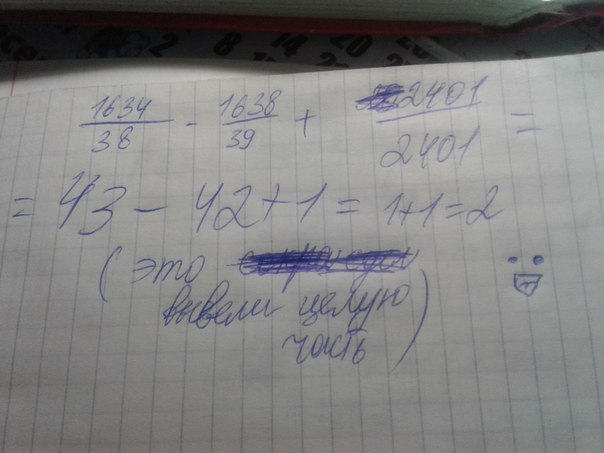 1634/38 - 1638/39 + 2401/2401 =
= 43 - 42 + 1 = 1+1=2
(это
вывели целую
часть)